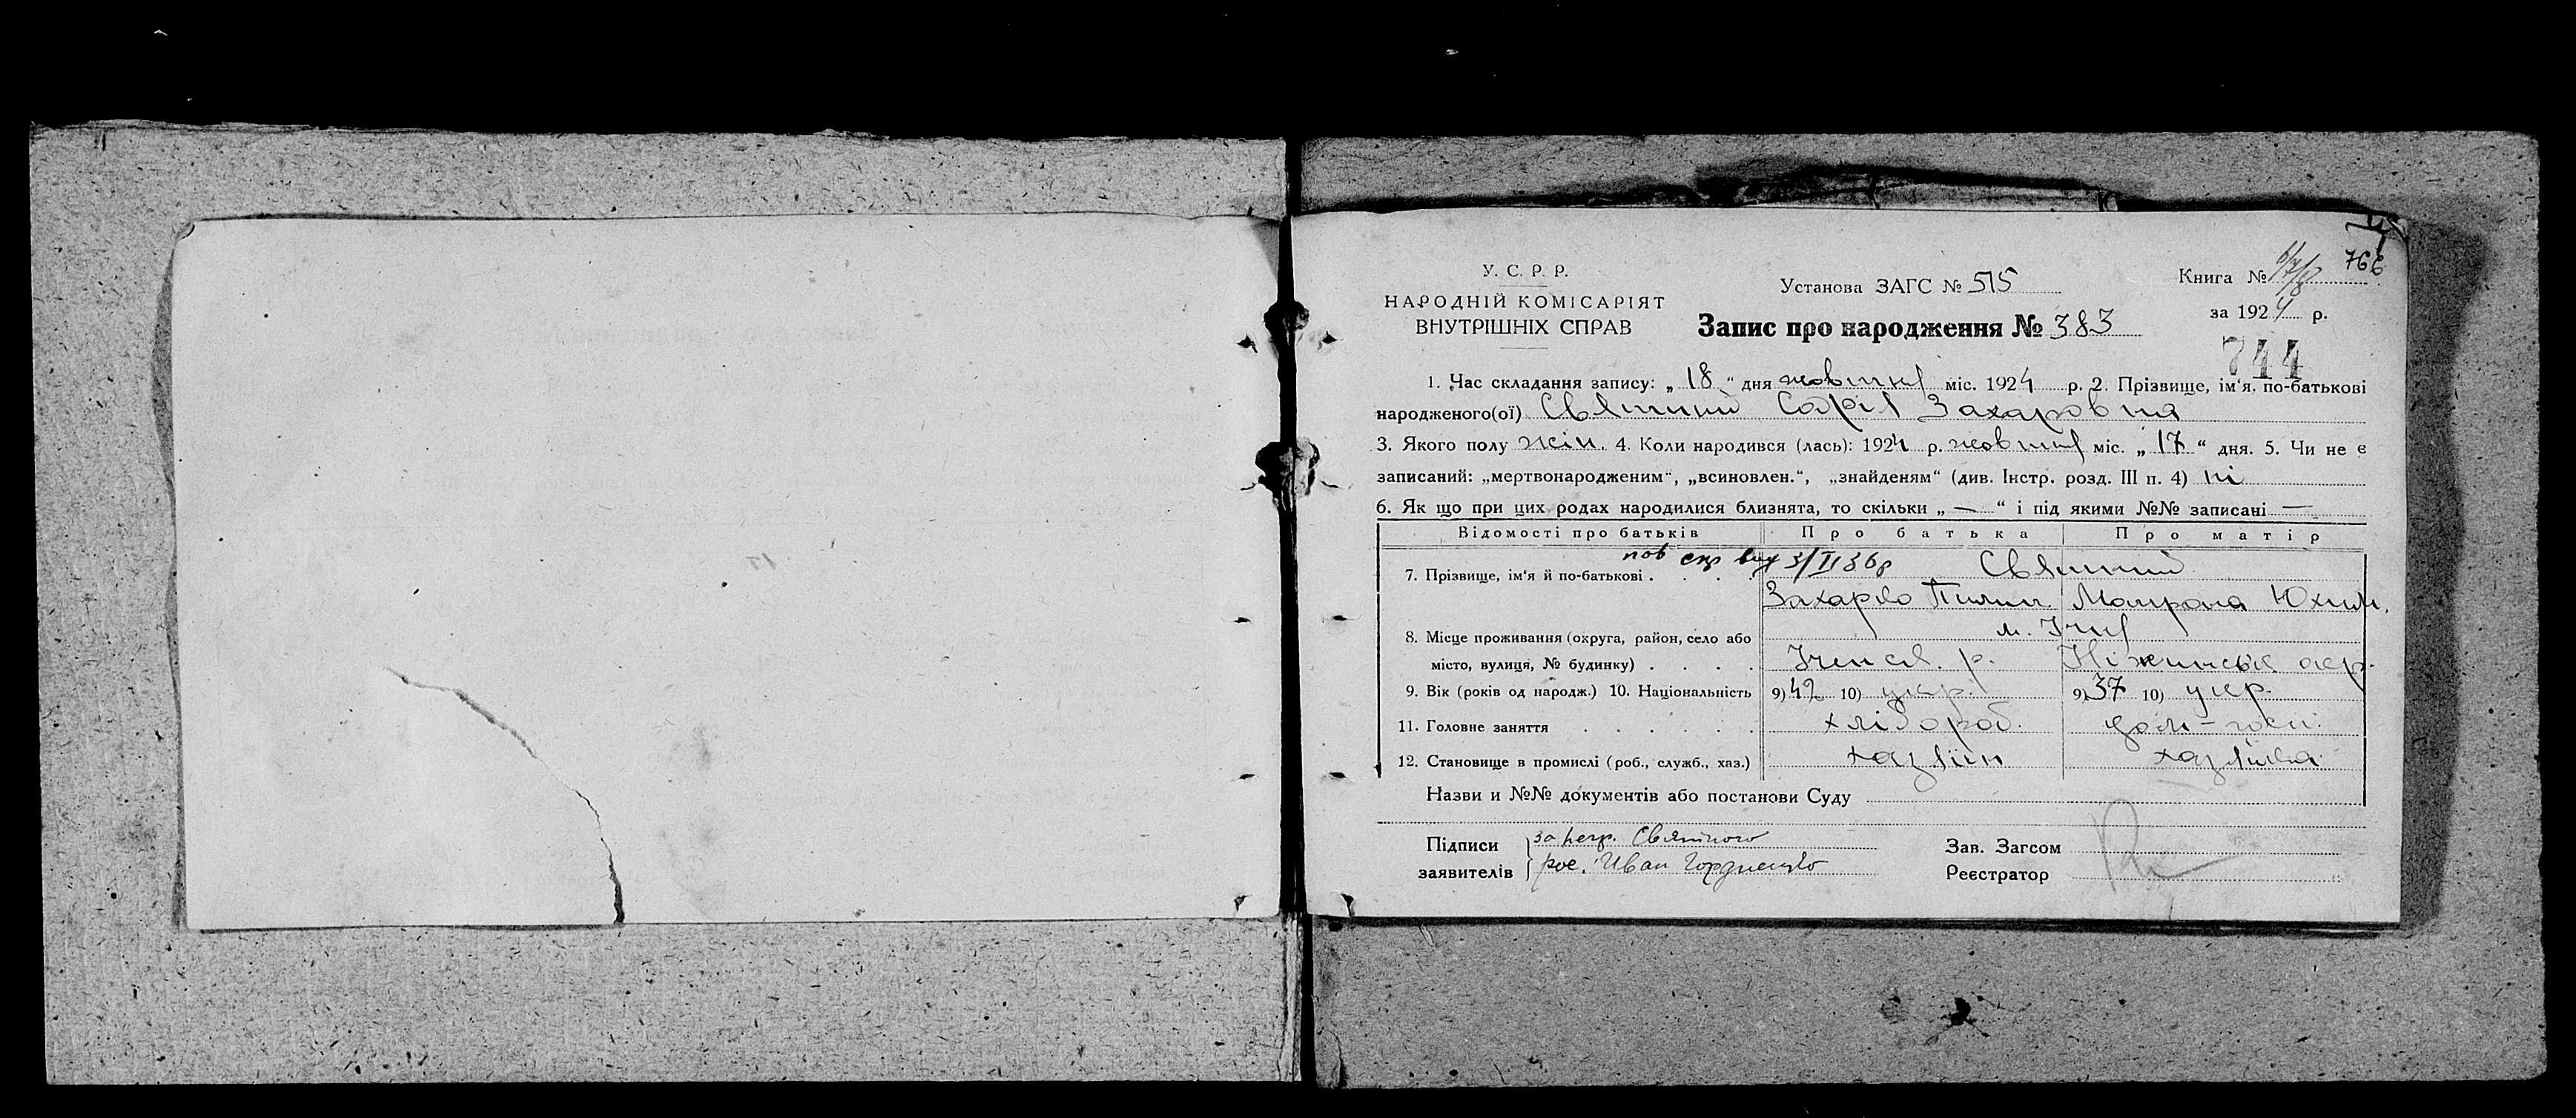 766
У. С. Р. Р.
НАРОДНІЙ КОМІСАРІЯТ
ВНУТРІШНІХ СПРАВ
Установа ЗАГС № 515
Книга №
за 1924 р.
Запис про народження № 383
744
1. Час складання запису: „ 18 “ дня жовтня міс. 1924 р. 2. Прізвище, ім‘я, по-батькові
народженого(ої) Святний Софія Захаровна
3. Якого полу жін. 4. Коли народився (лась): 1924 р. жовтня міс. „ 17 “ дня. 5. Чи не є
записаний: „мертвонародженим“, „всиновлен.“, „знайденям“ (див. Інстр. розд. III п. 4) ні
6. Як що при цих родах народилися близнята, то скільки „ — “ і під якими №№ записані —
Відомості про батьків Про батька Про матір
7. Прізвище, ім‘я й по-батькові . . . . 3/II 36р Святний
Захарко Пилип. Мотрона Юхим.
8. Місце проживання (округа, район, село або м. Ічня
місто, вулиця, № будинку) . . . . Іченськ. р. Ніжинськ. окр.
9. Вік (років од народж.) 10. Національність 9) 42 10) укр. 9) 37 10) укр.
11. Головне заняття . . . . . . хлібороб. дом-госп.
12. Становище в промислі (роб., служб., хаз.) хазяїн хазяйка
Назви и №№ документів або постанови Суду
Підписи
заявителів
за негр. Святного
рос. Иван Гордиенко
Зав. Загсом
Реєстратор